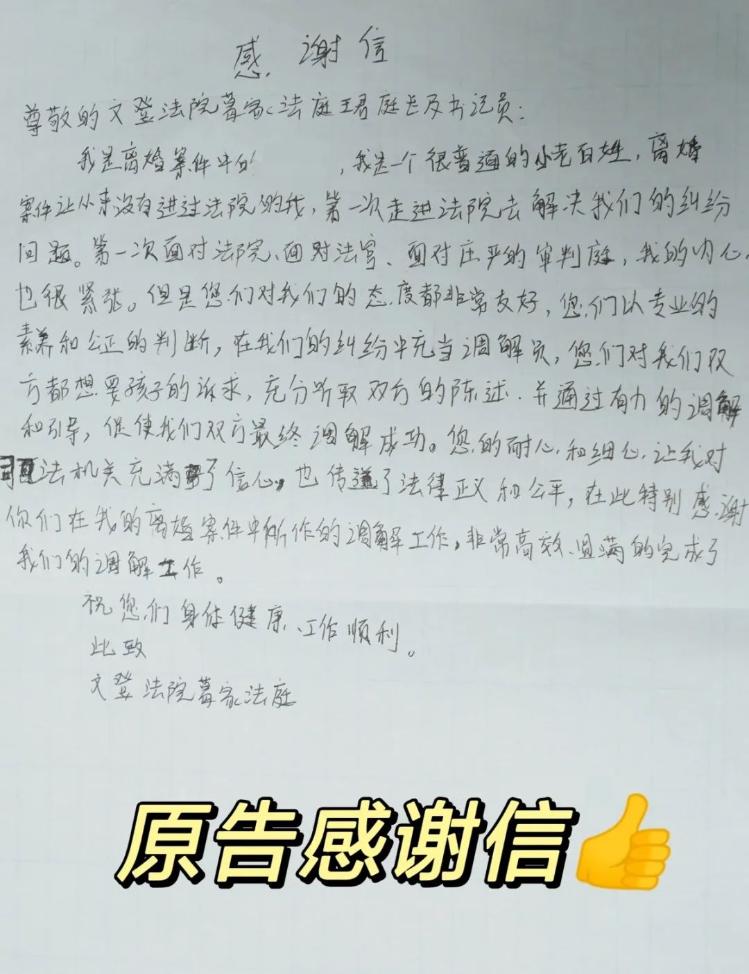 感谢信
尊敬的文登法院葛家法庭王君庭长及书记员:
我是离婚案件中的 ,我是一个很普通的小老百姓,离婚
案件让从来没有进过法院的我,第一次走进法院去解决我们的纠纷
问题。第一次面对法院、面对法官、面对庄严的审判庭,我的内心
也很紧张。但是您们对我们的态度都非常友好,您们以专业的
素养和公正的判断,在我们的纠纷中充当调解员,您们对我们双
方都想要孩子的诉求,充分听取双方的陈述.并通过有力的调解
和引导,促使我们双方最终调解成功。您的耐心和细心,让我对
司法机关充满了信心,也传递了法律正义和公平,在此特别感谢
你们在我的离婚案件中所作的调解工作,非常高效、圆满的完成了
我们的调解工作。
祝您们身体健康、工作顺利。
此致
文登法院葛家法庭
原告感谢信